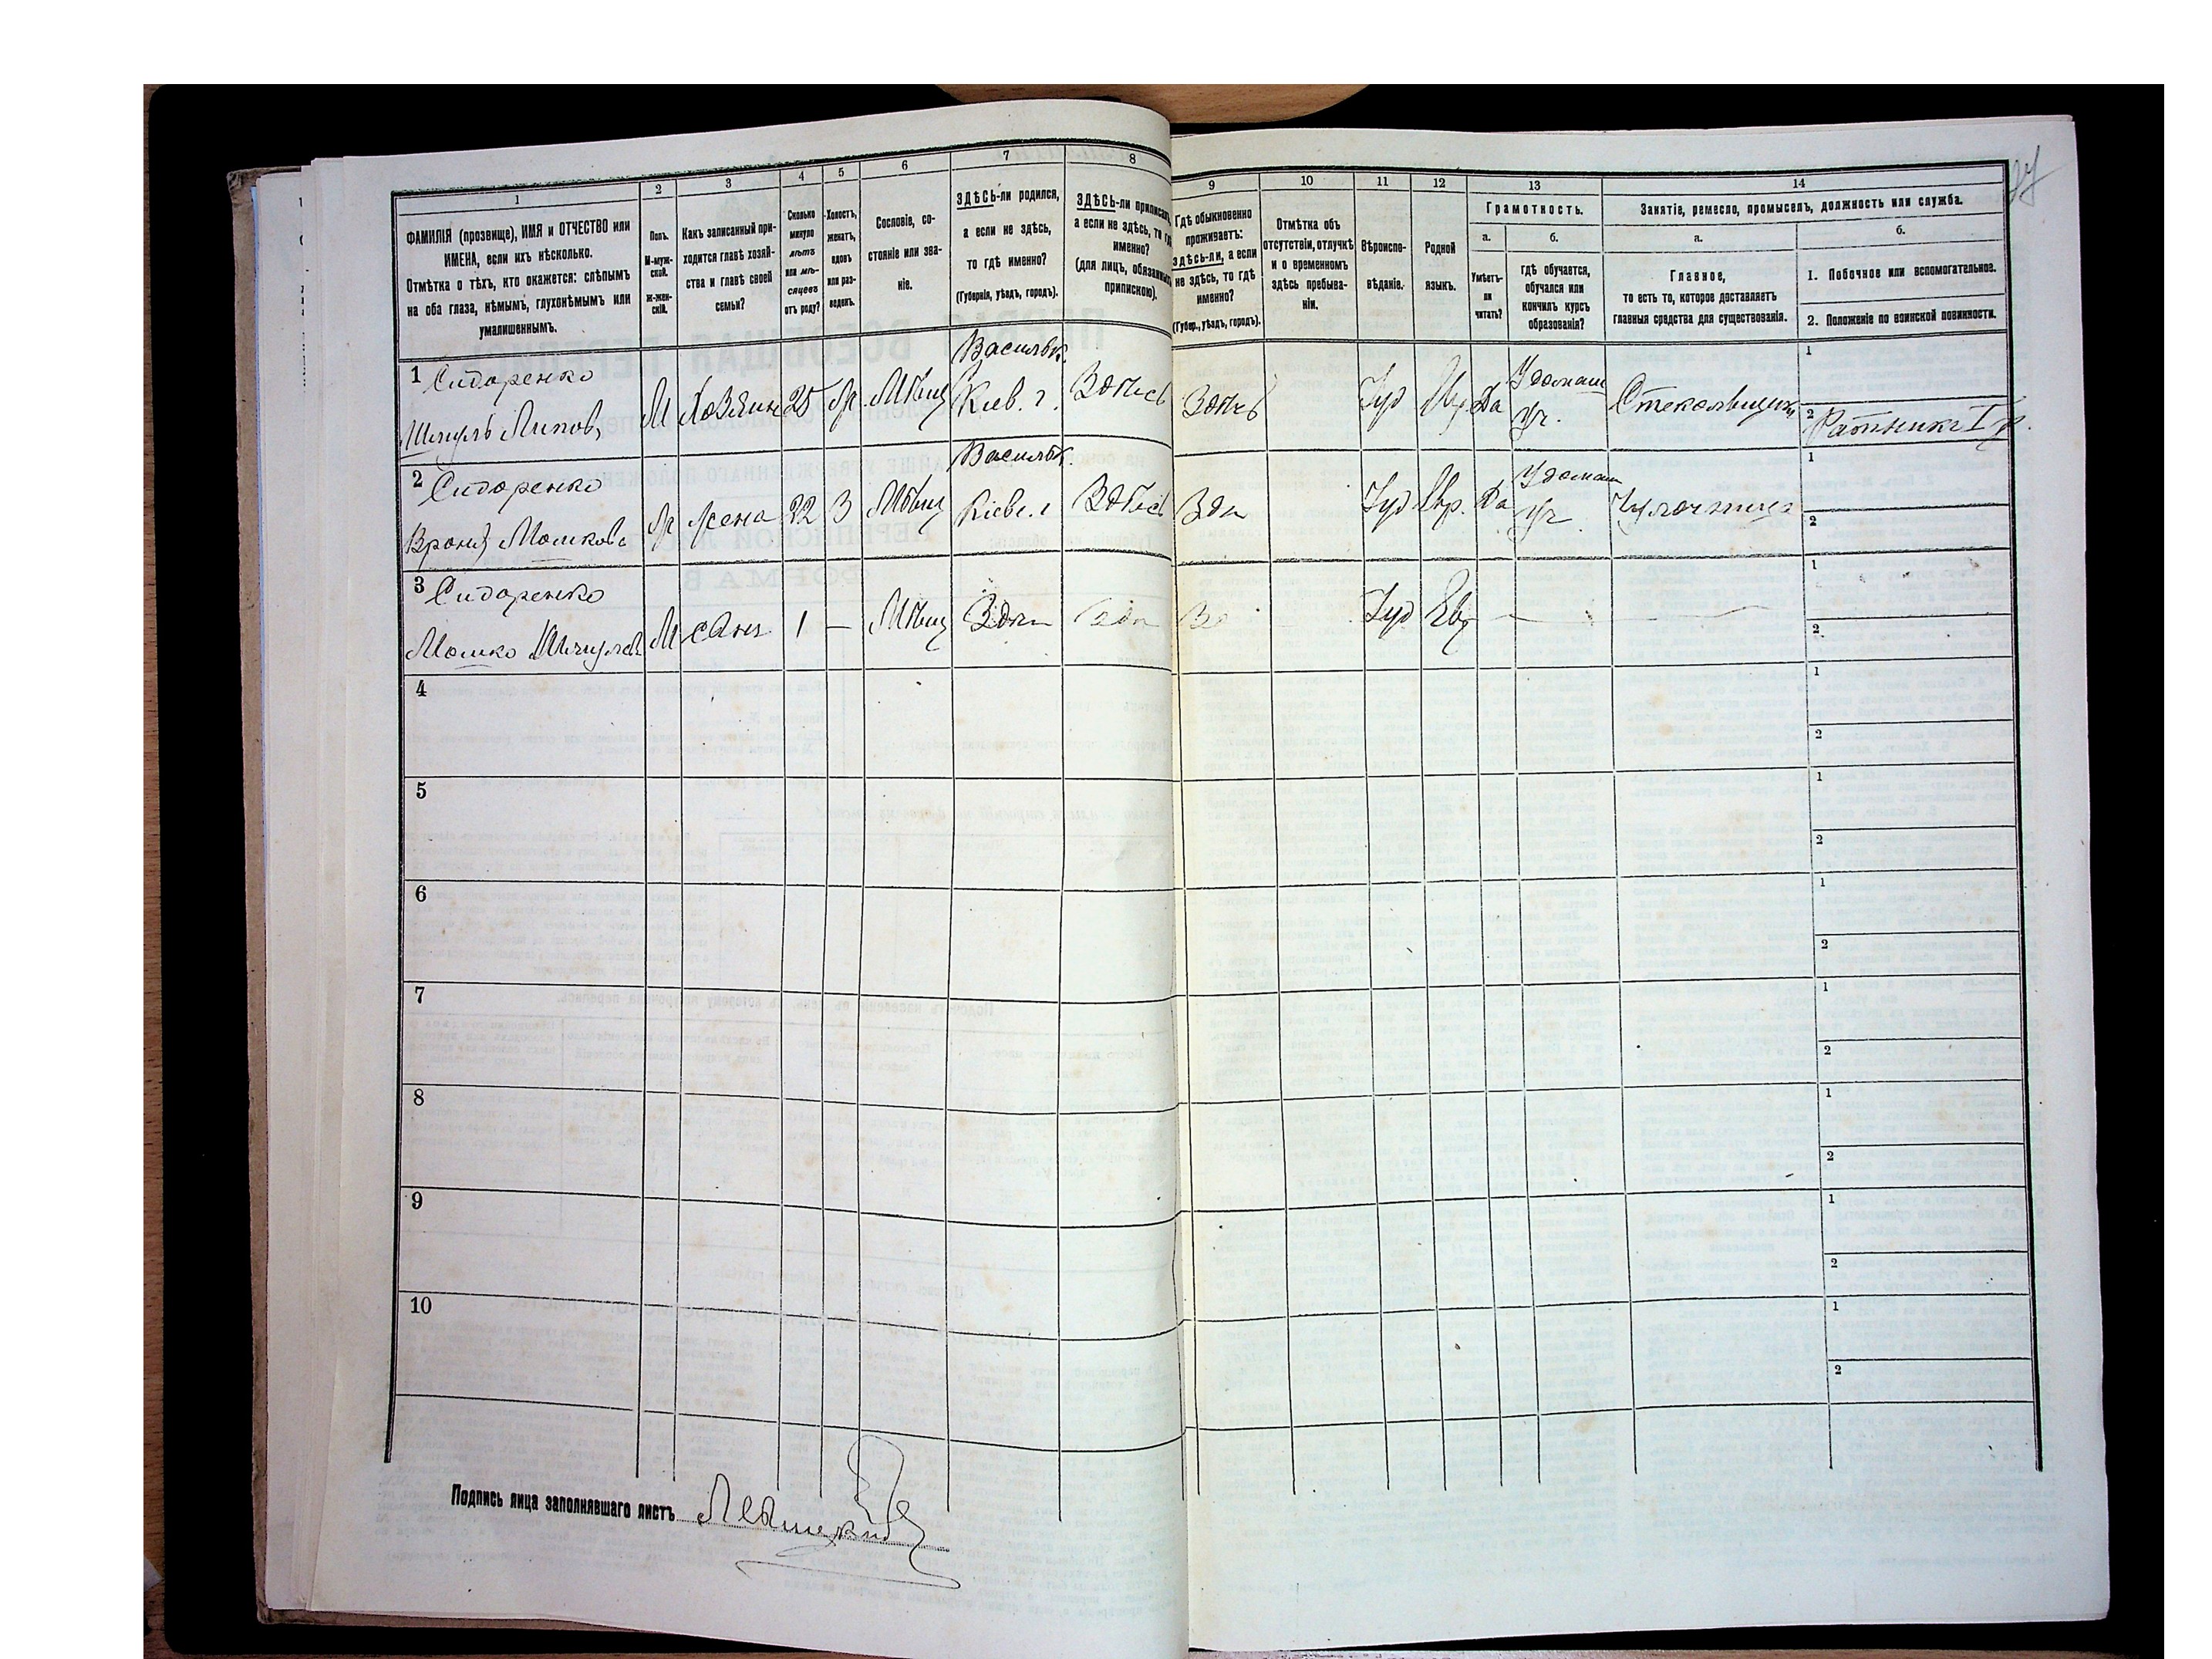 1
2
3
4
5
6
7
8
9
10
11
12
13
14
ФАМИЛІЯ (прозвище), ИМЯ и ОТЧЕСТВО или
ИМЕНА, если ихъ нѣсколько.
Отмѣтка о тѣхъ, кто окажется: слѣпымъ
на оба глаза, нѣмымъ, глухонѣмымъ или
умалишеннымъ.
Полъ.
М-муж-
ской.
Ж-жен-
скій.
Какъ записанный при-
ходится главѣ хозяй-
ства и главѣ своей
семьи?
Сколько
минуло
лѣтъ
или мѣ-
сяцевъ
отъ роду?
Холостъ,
женатъ,
вдовъ
или раз-
веденъ.
Сословіе, со-
стояніе или зва-
ніе.
ЗДѢСЬ-ли родился,
а если не здѣсь,
то гдѣ именно?
(Губернія, уѣздъ, городъ).
ЗДѢСЬ-ли приписанъ,
а если не здѣсь, то гдѣ
именно?
(для лицъ, обязанныхъ
припискою).
Гдѣ обыкновенно
проживаетъ:
здѣсь-ли, а если
не здѣсь, то гдѣ
именно?
(Губер., уѣздъ, городъ).
Отмѣтка объ
отсутствіи, отлучкѣ
и о временномъ
здѣсь пребыва-
ніи.
Вѣроиспо-
вѣданіе.
Родной
языкъ.
Грамотность.
а.
Умѣетъ-
ли
читать?
б.
гдѣ обучается,
обучался или
кончилъ курсъ
образованія?
Занятіе, ремесло, промыселъ, должность или служба.
а.
Главное,
то есть то, которое доставляетъ
главныя средства для существованія.
б.
1. Побочное или вспомогательное.
2. Положеніе по воинской повинности.
1 Сидоренко
Шмуль Липов,
М
Хозяин
25
Мѣщ
Васильк.
Кіев. г.
Здѣсь
Здѣсь
Іуд
Да
У домаш
уч.
Стекольщик
1
2 Ратникъ I р.
2 Сидоренко
Мошкова
жена
22
З
Мѣщ
Васильк.
Кіевс. г
Здѣсь
Здѣ
Іуд
Евр.
Да
У домаш
уч.
Чулочница
1
2
3 Сидоренко
Мошко Шмулев
М
сын
1
—
Мѣщ
Здѣ
Здѣ
Іуд
Евр
—
—
1
2
4
1
2
5
1
2
6
1
2
7
1
2
8
1
2
9
1
2
10
1
2
Подпись лица заполнявшаго листъ